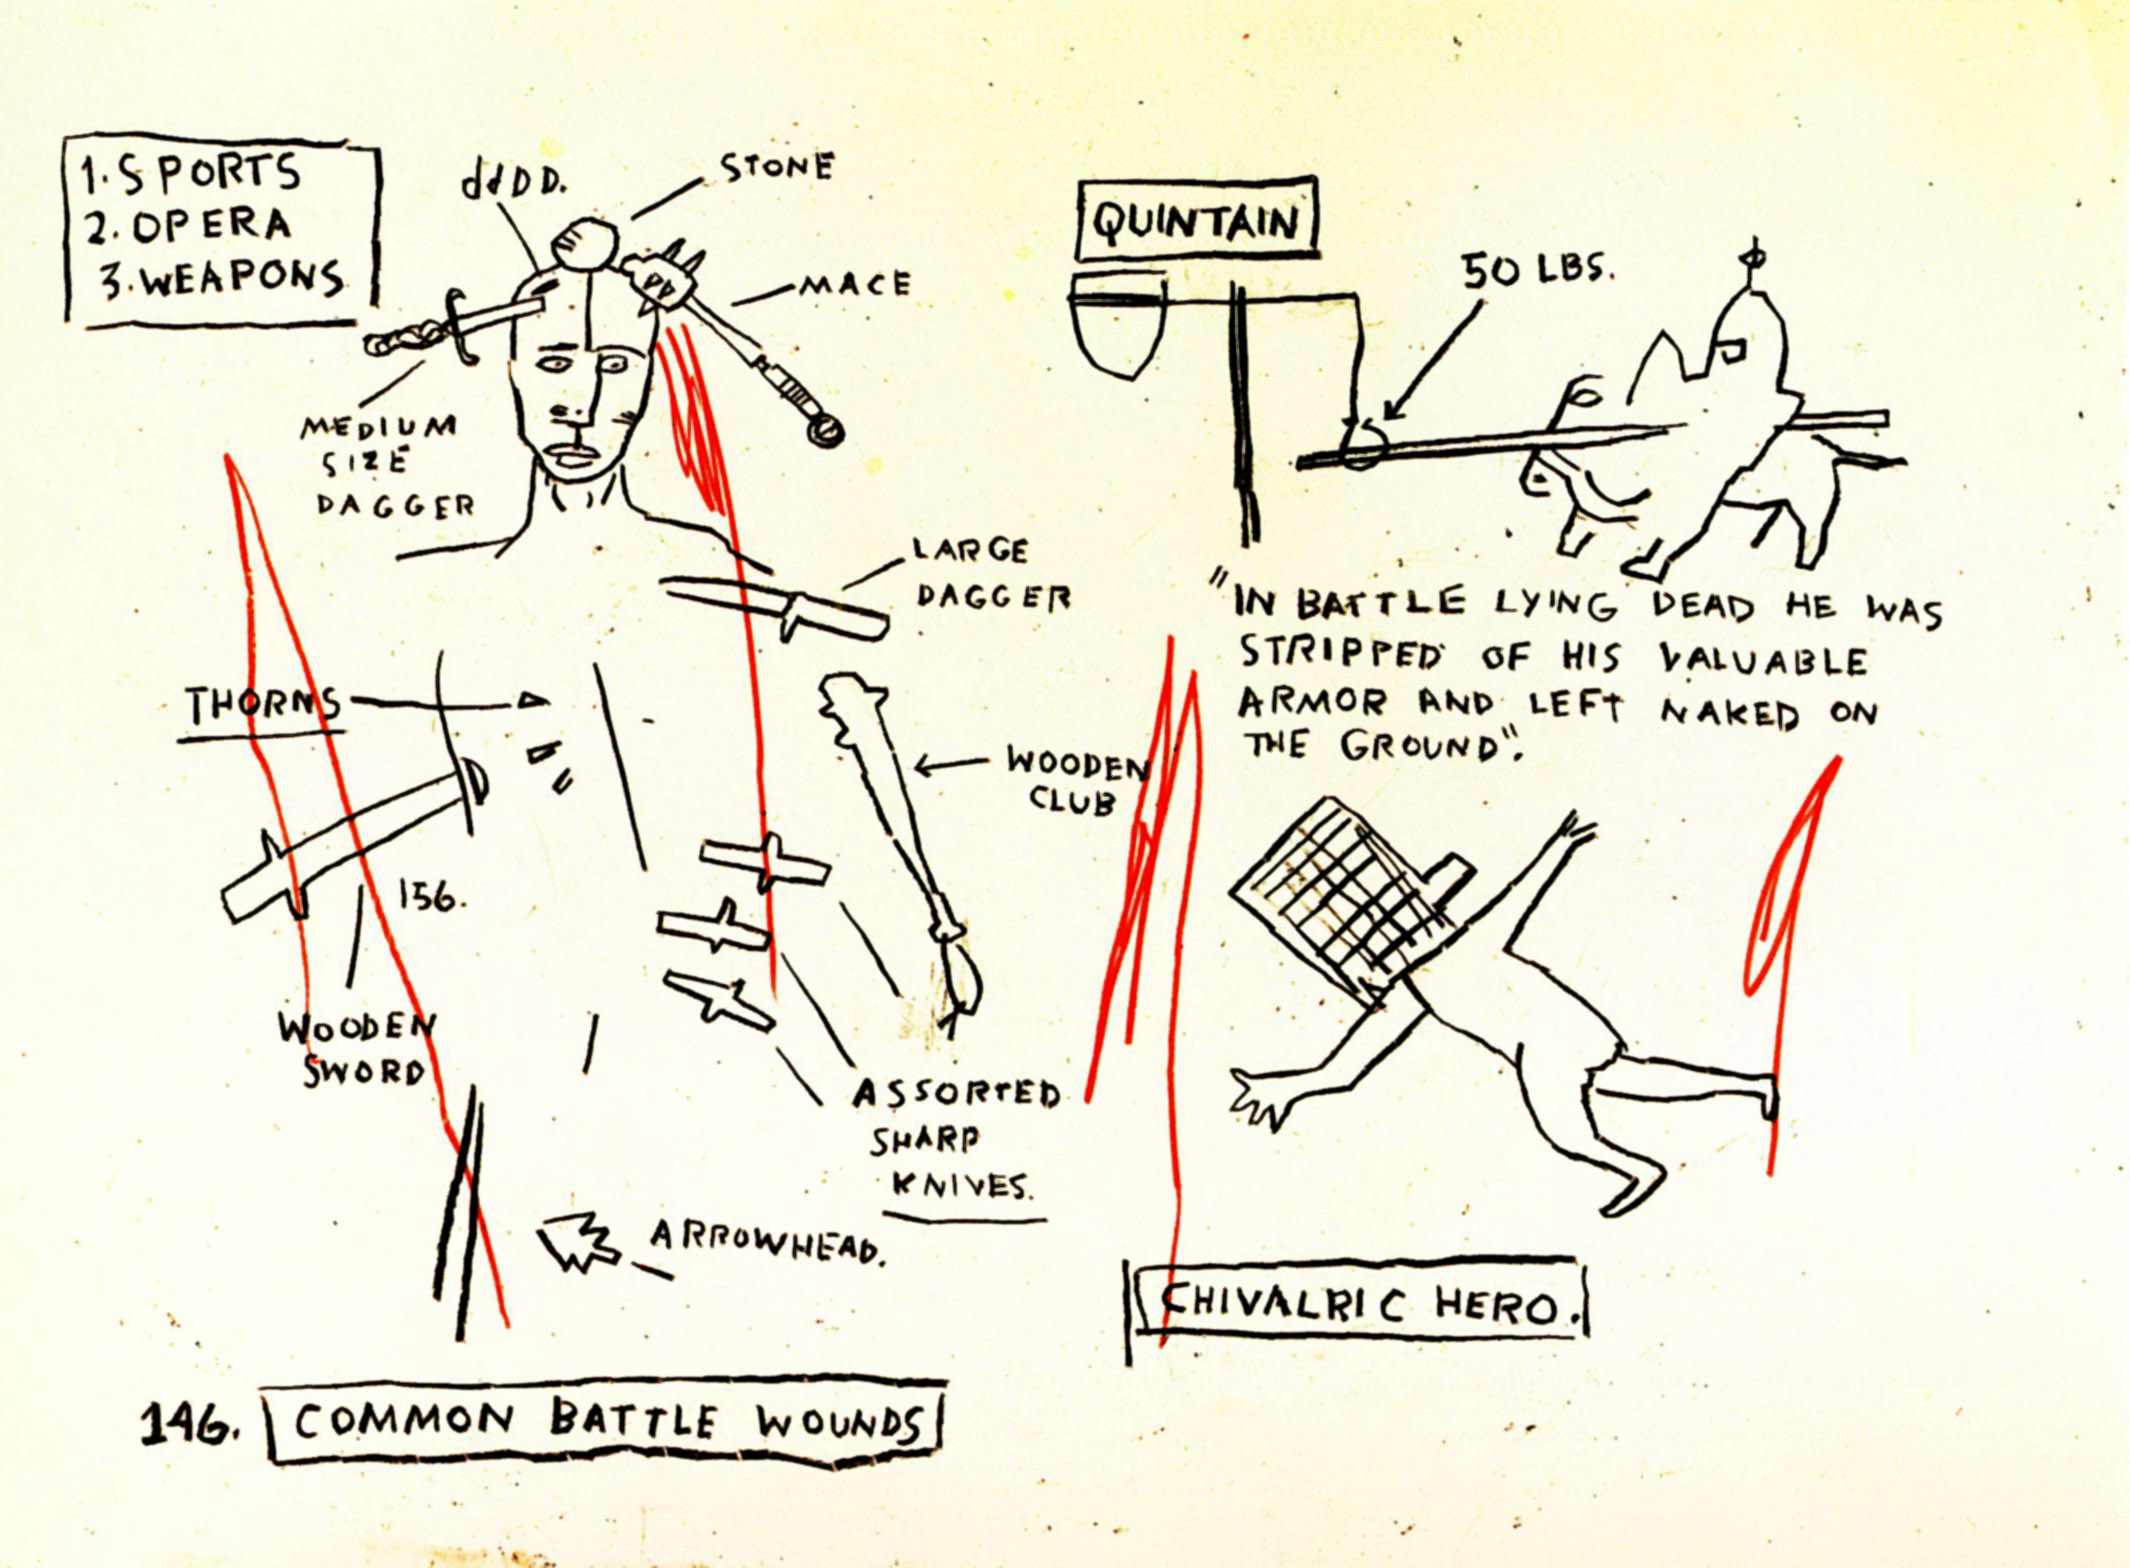 1. SPORTS
2. OPERA
3. WEAPONS
ddDD.
STONE
MACE
MEDIUM
SIZE
DAGGER
LARGE
DAGGER
THORNS
WOODEN
CLUB
156.
WOODEN
SWORD
ASSORTED
SHARP
KNIVES.
ARROWHEAD.
146. COMMON BATTLE WOUNDS
QUINTAIN
50 LBS.
"IN BATTLE LYING DEAD HE WAS
STRIPPED OF HIS VALUABLE
ARMOR AND LEFT NAKED ON
THE GROUND".
CHIVALRIC HERO.